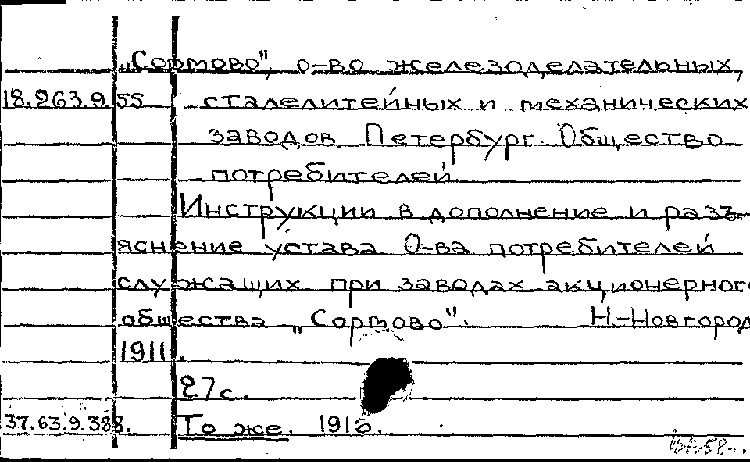 „Сормово", о-во железоделательных,
18.263.9.55 сталелитейных и механических
заводов, Петербург. Общество
потребителей
Инструкции в дополнение и разъ-
яснение устава О-ва потребителей
служащих при заводах акционерног
общества „Сормово". Н.-Новгород
1911.
27с.
37.63.9.388. То же. 1916.